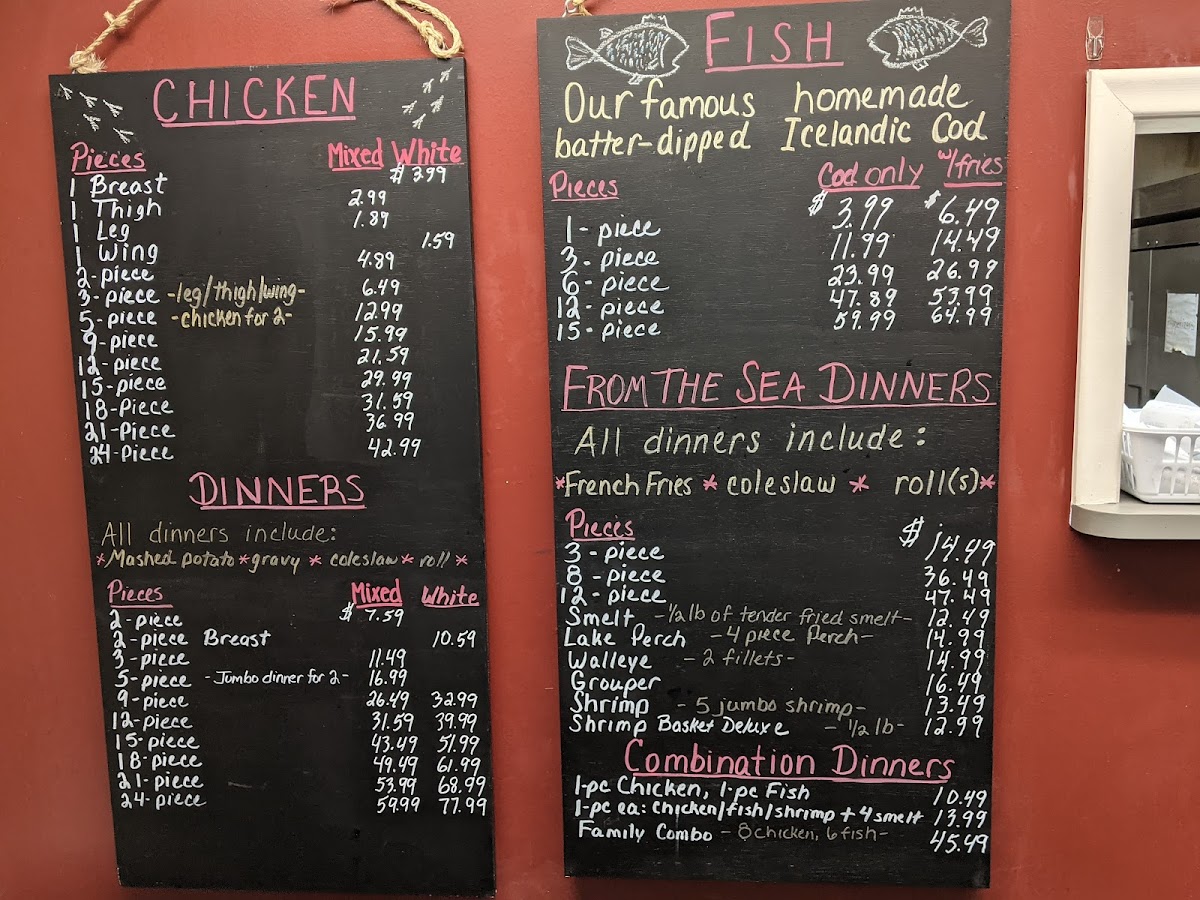 CHICKEN
Pieces Mixed White
1 Breast $ 3.99
1 Thigh 2.99
1 Leg 1.89
1 Wing 1.59
2-piece 4.89
3-piece -leg/thigh/wing- 6.49
5-piece -chicken for 2- 12.99
9-piece 15.99
12-piece 21.59
15-piece 29.99
18-Piece 31.59
21-Piece 36.99
24-Piece 42.99
DINNERS
All dinners include:
*Mashed potato*gravy * coleslaw * roll *
Pieces Mixed White
2-piece $ 7.59
2-piece Breast 10.59
3-piece 11.49
5-piece -Jumbo dinner for 2- 16.99
9-piece 26.49 32.99
12-piece 31.59 39.99
15-piece 43.49 51.99
18-piece 49.49 61.99
21-piece 53.99 68.99
24-piece 59.99 77.99
FISH
Our famous homemade
batter-dipped Icelandic Cod
Pieces Cod only w/fries
1-piece $ 3.99 $ 6.49
3-piece 11.99 14.49
6-piece 23.99 26.99
12-piece 47.89 53.99
15-piece 59.99 64.99
FROM THE SEA DINNERS
All dinners include:
*French Fries * coleslaw * roll(s)*
Pieces
3-piece $ 14.49
8-piece 36.49
12-piece 47.49
Smelt -1/2 lb of tender fried smelt- 12.49
Lake Perch -4 piece Perch- 14.99
Walleye -2 fillets- 14.99
Grouper 16.49
Shrimp -5 jumbo shrimp- 13.49
Shrimp Basket Deluxe -1/2 lb- 12.99
Combination Dinners
1-pc Chicken, 1-pc Fish 10.49
1-pc ea: Chicken/fish/shrimp + 4 smelt 13.99
Family Combo -8 chicken, 6 fish- 45.49